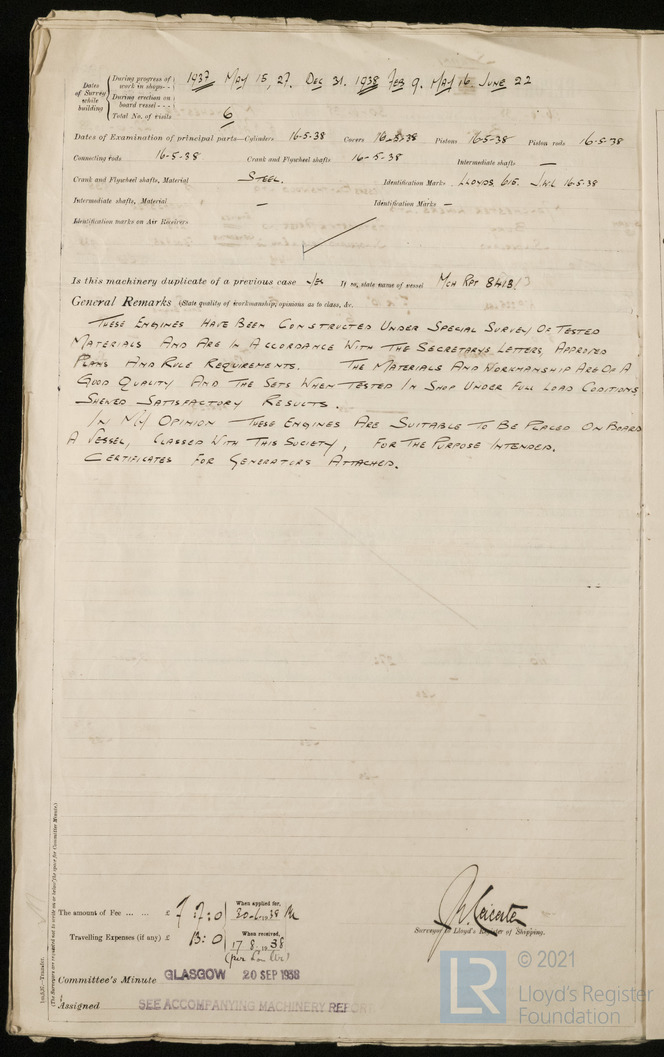 Dates of Survey while building
During progress of work in shops-- 1937 May 15, 27. Dec 31. 1938 Feb 9. May 16. June 22
During erection on board vessel---
Total No. of visits 6
Dates of Examination of principal parts—Cylinders 16-5-38 Covers 16-5-38 Pistons 16-5-38 Piston rods 16-5-38
Connecting rods 16-5-38 Crank and Flywheel shafts 16-5-38 Intermediate shafts —
Crank and Flywheel shafts, Material STEEL. Identification Marks LLOYDS 615. J.W.L 16-5-38
Intermediate shafts, Material — Identification Marks —
Identification marks on Air Receivers
Is this machinery duplicate of a previous case Yes If so, state name of vessel MCH RPT 8418
General Remarks (State quality of workmanship, opinions as to class, &c.
THESE ENGINES HAVE BEEN CONSTRUCTED UNDER SPECIAL SURVEY OF TESTED
MATERIALS AND ARE IN ACCORDANCE WITH THE SECRETARYS LETTERS, APPROVED
PLANS AND RULE REQUIREMENTS. THE MATERIALS AND WORKMANSHIP ARE OF A
GOOD QUALITY AND THE SETS WHEN TESTED IN SHOP UNDER FULL LOAD CODITIONS,
SHEWED SATISFACTORY RESULTS.
IN MY OPINION THESE ENGINES ARE SUITABLE TO BE PLACED ON BOARD
A VESSEL, CLASSED WITH THIS SOCIETY, FOR THE PURPOSE INTENDED.
CERTIFICATES FOR GENERATORS ATTACHED.
(The Surveyors are requested not to write on or below the space for Committee Minute.)
The amount of Fee ... ... £ 7 : 7 : 0 When applied for, 30-6-1938
Travelling Expenses (if any) £ 13 : 0 When received, 17. 8. 1938
Surveyor to Lloyd's Register of Shipping.
Committee's Minute GLASGOW 20 SEP 1938
Assigned SEE ACCOMPANYING MACHINERY REPORT
LR © 2021
Lloyd's Register
Foundation